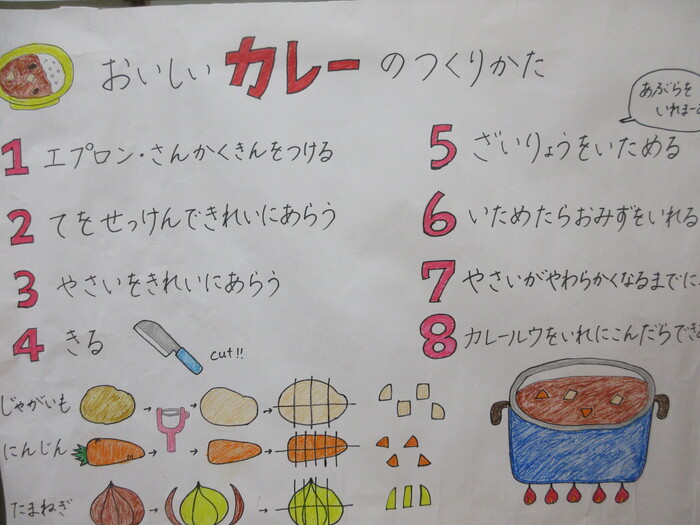 おいしい カレー のつくりかた
1 エプロン・さんかくきんをつける
2 てをせっけんできれいにあらう
3 やさいをきれいにあらう
4 きる
cut!!
じゃがいも
にんじん
たまねぎ
あぶらを
いれまー
5 ざいりょうをいためる
6 いためたらおみずをいれる
7 やさいがやわらかくなるまでに
8 カレールウをいれにこんだらでき